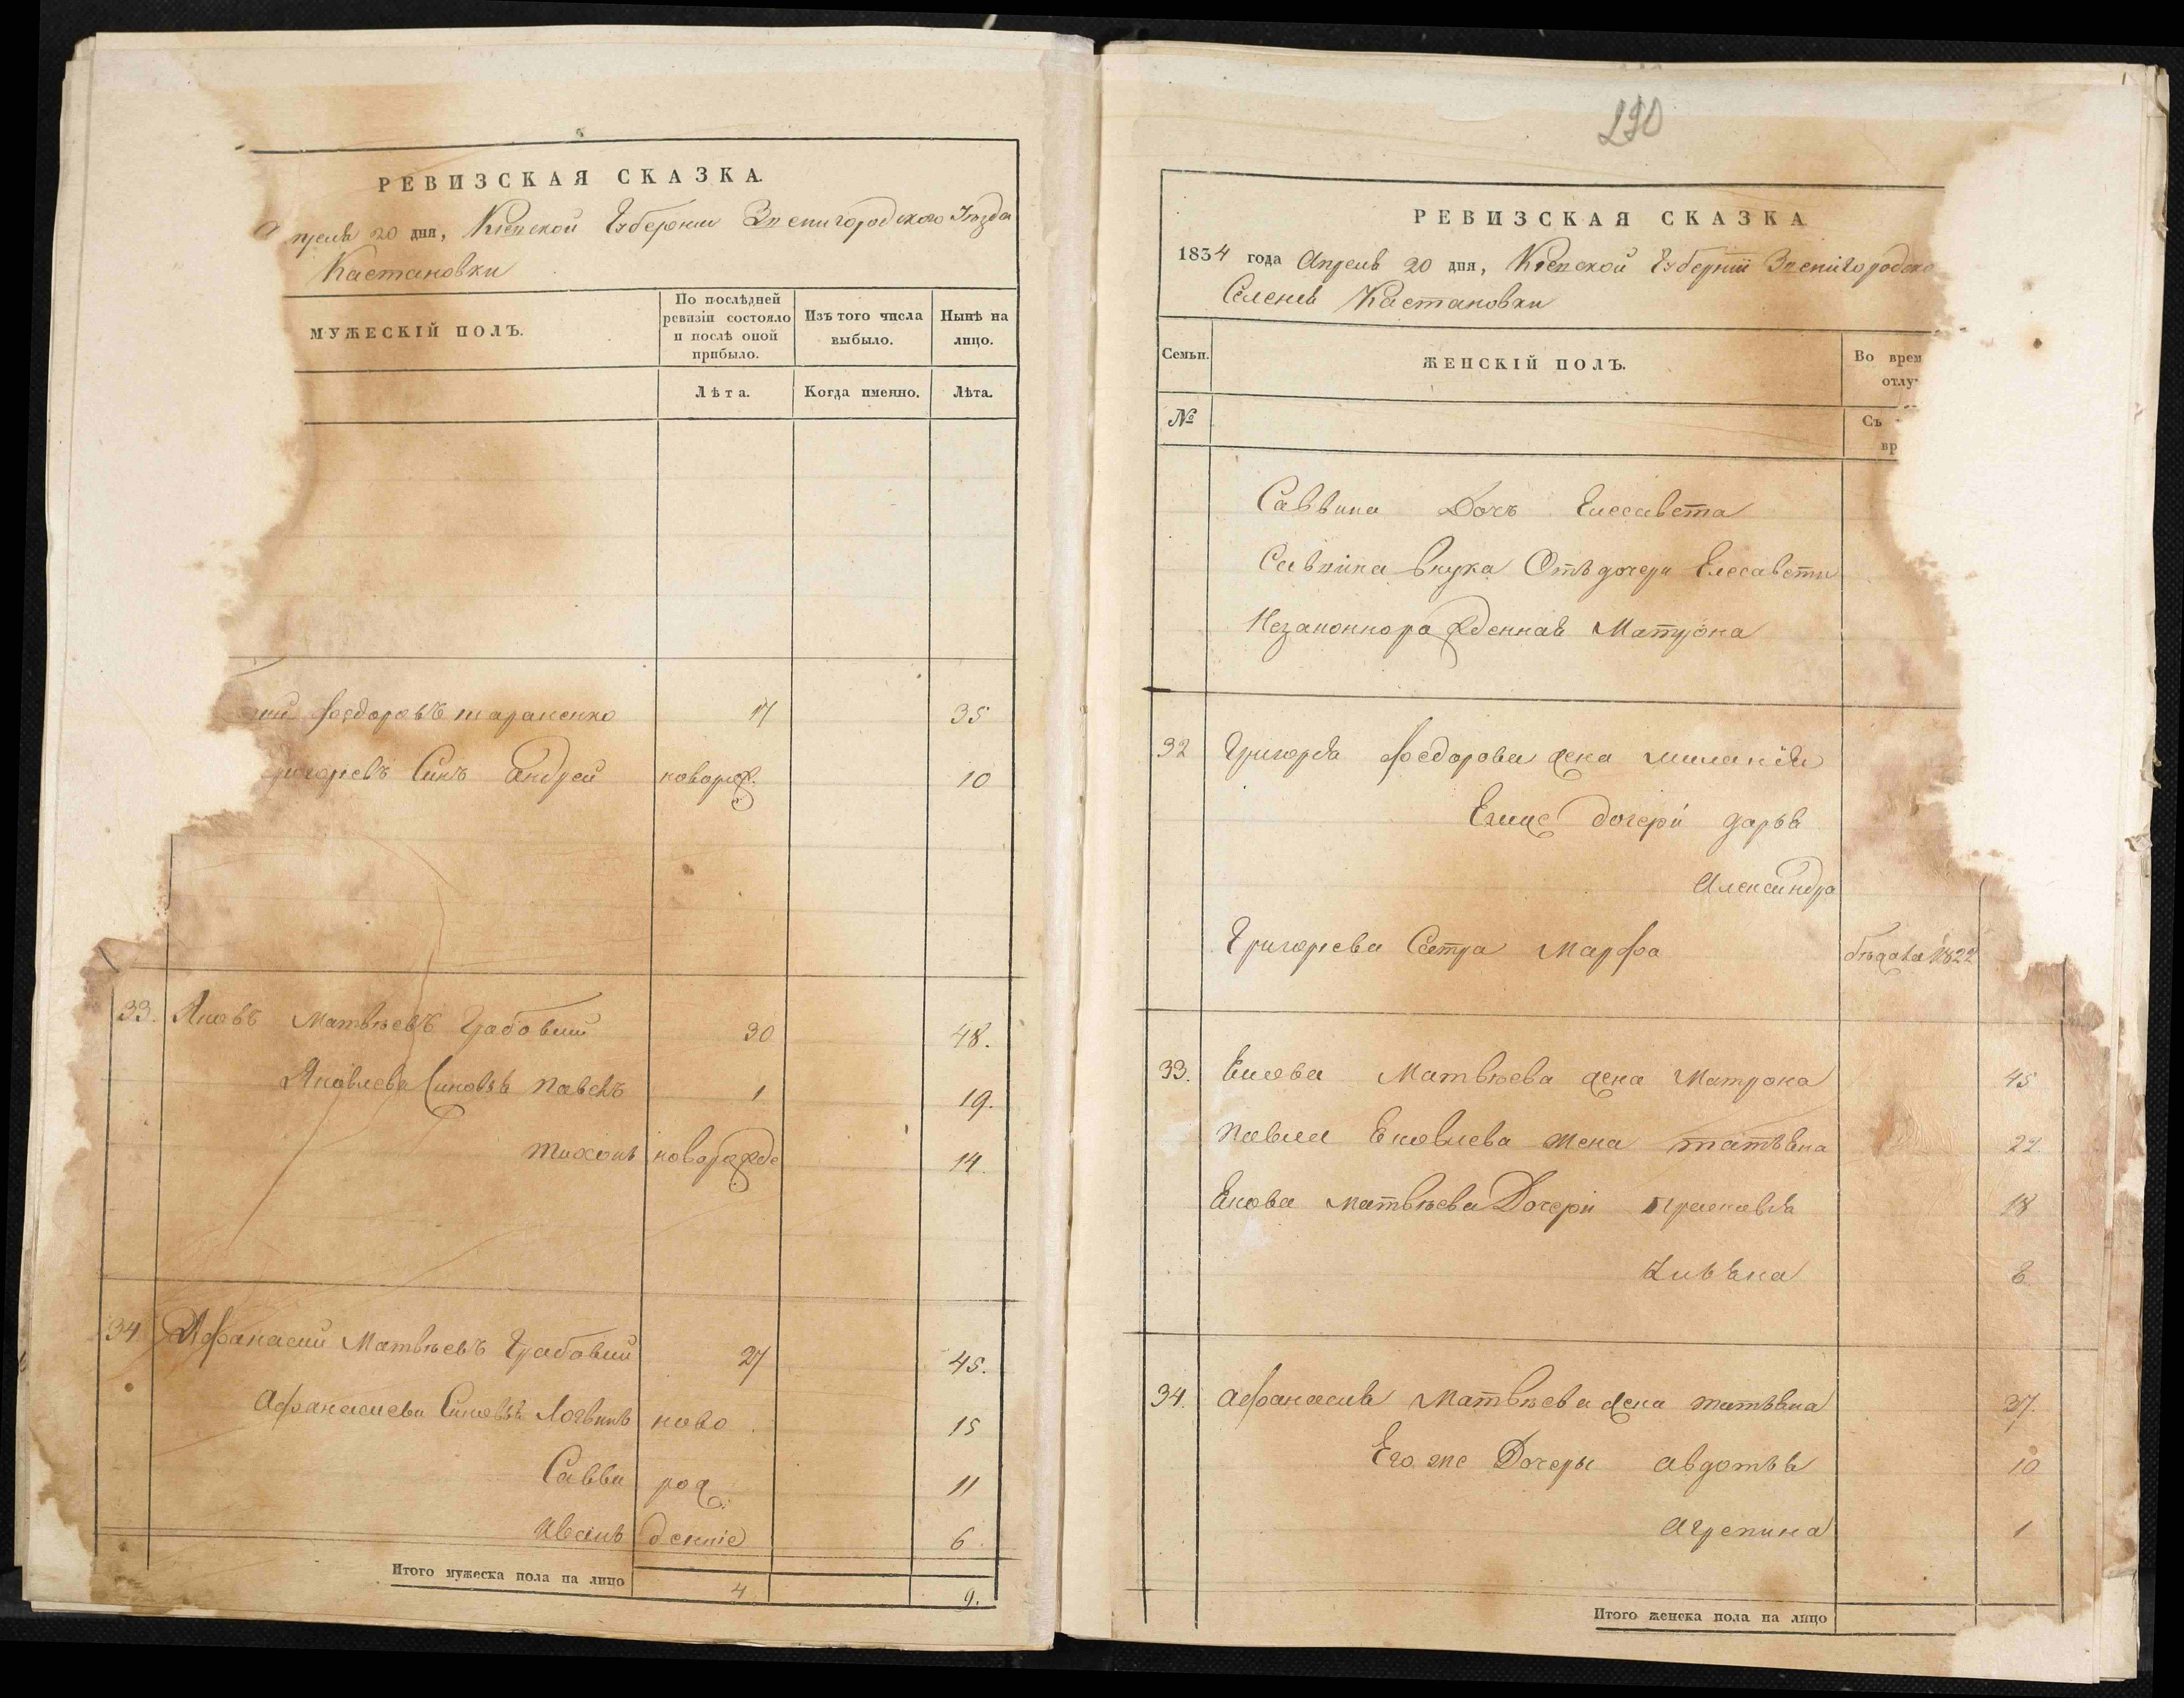 РЕВИЗСКАЯ СКАЗКА.
Апреля 20 дня, Кіевской Губернии Звенигородского Уезда
Кастановки
МУЖЕСКІЙ ПОЛЪ.
По послѣдней ревизіи состояло и послѣ оной прибыло.
Изъ того числа выбыло.
Нынѣ на лицо.
Лѣта.
Когда именно.
Лѣта.
Федоровъ тараненко 17 35
Григорьевъ Синъ Андрей новорож. 10
33. Яковъ Матвѣевъ Грабовий 30 48.
Яковлева Синовья Павелъ 1 19.
Тихонъ новорожде 14
34 Афанасий Матвѣевъ Грабовий 27 45.
Афанасиева Синовья Логвинъ ново 15
Савва рож 11
Иванъ дение 6
Итого мужеска пола на лицо 4 9.
290
РЕВИЗСКАЯ СКАЗКА
1834 года Апреля 20 дня, Кіевской Губерніи Звенігородско
Селенія Кастановки
Семьи.
ЖЕНСКІЙ ПОЛЪ.
Во врем
отлу
№
Съ
вр
Саввина Дочъ Елесавета
Савина внука Отъ дочери Елесавети
Незаконнорожденная Матрона
32 Григорія Федорова жена миланія
Егоже дочери дарья
Александра
Григориева Сестра Марфа бежала 1822
33. Екова Матвѣева жена Матрона 45
ПавлаЕковлева жена татьяна 22.
Екова Матвѣева Дочери Прасковья 18
Ульяна 8
34. Афанасия Матвѣева жена татьяна 37.
Его же Дочеры авдотья 10
Агрепина 1
Итого женска пола на лицо